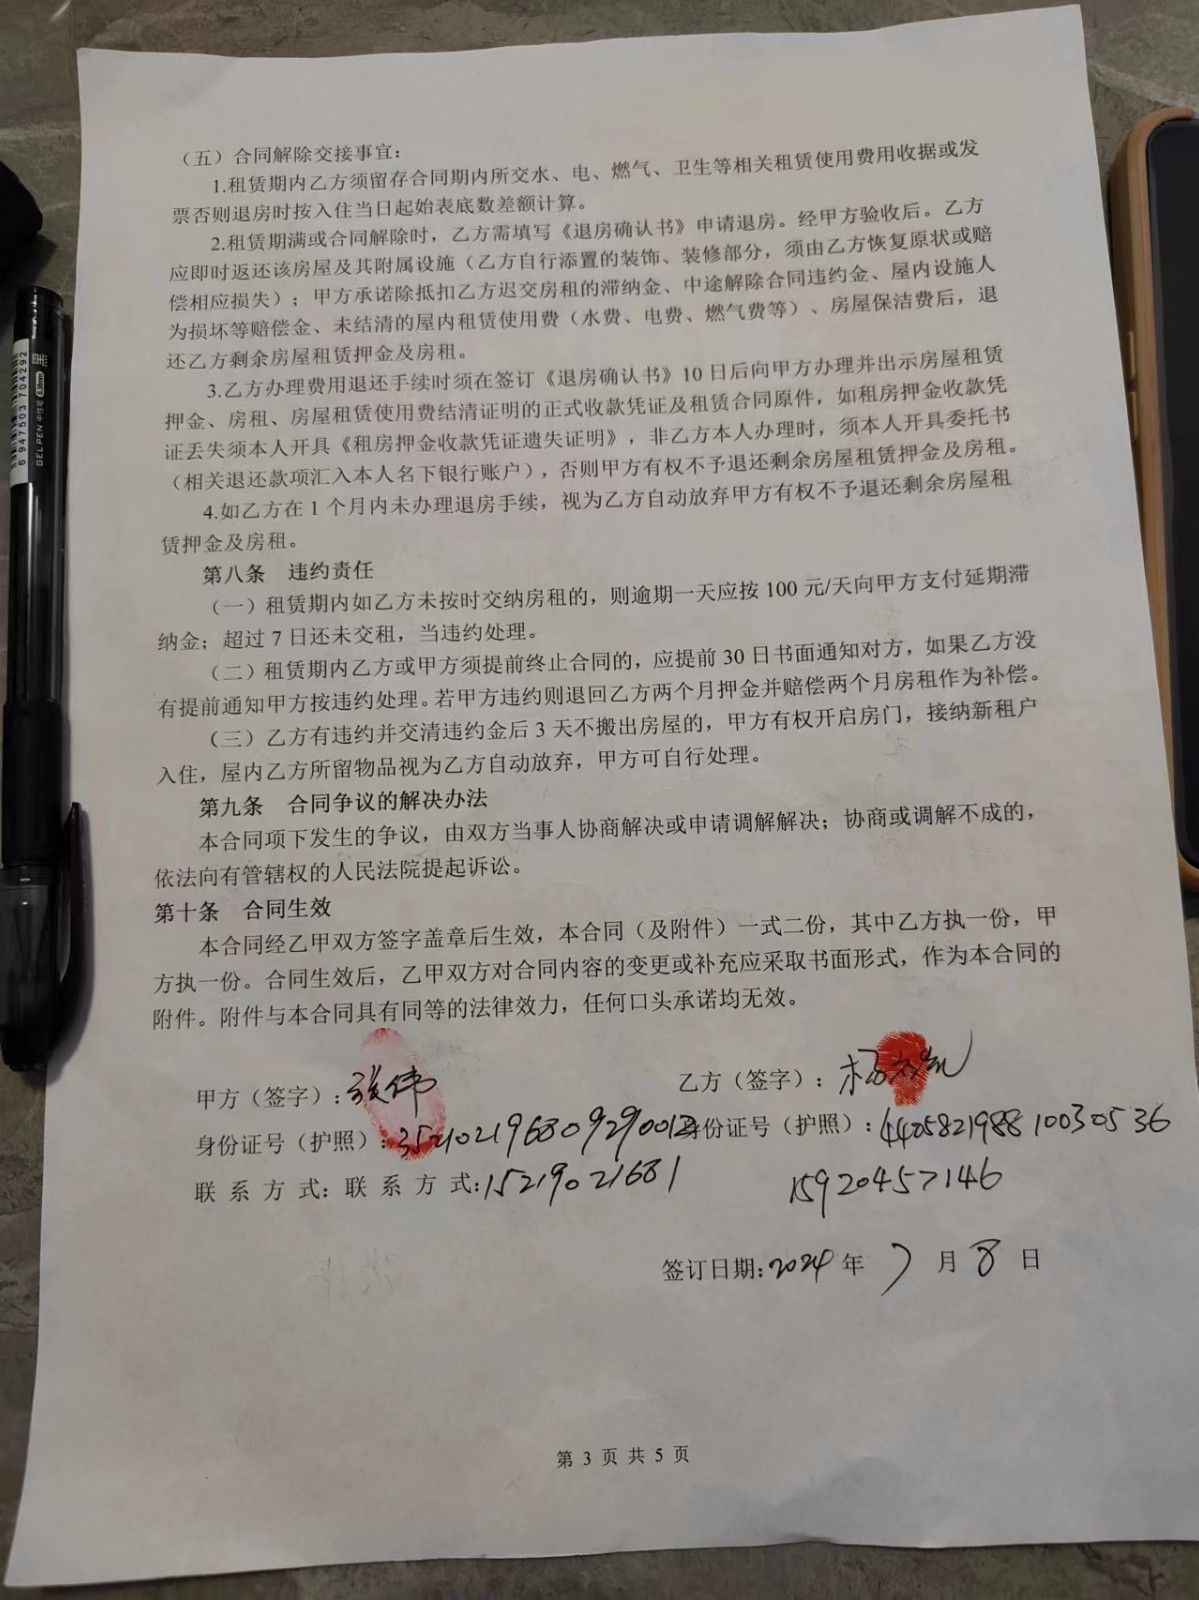 （五）合同解除交接事宜：
1.租赁期内乙方须留存合同期内所交水、电、燃气、卫生等相关租赁使用费用收据或发
票否则退房时按入住当日起始表底数差额计算。
2.租赁期满或合同解除时，乙方需填写《退房确认书》申请退房。经甲方验收后。乙方
应即时返还该房屋及其附属设施（乙方自行添置的装饰、装修部分，须由乙方恢复原状或赔
偿相应损失）；甲方承诺除抵扣乙方迟交房租的滞纳金、中途解除合同违约金、屋内设施人
为损坏等赔偿金、未结清的屋内租赁使用费（水费、电费、燃气费等）、房屋保洁费后，退
还乙方剩余房屋租赁押金及房租。
3.乙方办理费用退还手续时须在签订《退房确认书》10 日后向甲方办理并出示房屋租赁
押金、房租、房屋租赁使用费结清证明的正式收款凭证及租赁合同原件，如租房押金收款凭
证丢失须本人开具《租房押金收款凭证遗失证明》，非乙方本人办理时，须本人开具委托书
（相关退还款项汇入本人名下银行账户），否则甲方有权不予退还剩余房屋租赁押金及房租。
4.如乙方在 1 个月内未办理退房手续，视为乙方自动放弃甲方有权不予退还剩余房屋租
赁押金及房租。
第八条 违约责任
（一）租赁期内如乙方未按时交纳房租的，则逾期一天应按 100 元/天向甲方支付延期滞
纳金；超过 7 日还未交租，当违约处理。
（二）租赁期内乙方或甲方须提前终止合同的，应提前 30 日书面通知对方，如果乙方没
有提前通知甲方按违约处理。若甲方违约则退回乙方两个月押金并赔偿两个月房租作为补偿。
（三）乙方有违约并交清违约金后 3 天不搬出房屋的，甲方有权开启房门，接纳新租户
入住，屋内乙方所留物品视为乙方自动放弃，甲方可自行处理。
第九条 合同争议的解决办法
本合同项下发生的争议，由双方当事人协商解决或申请调解解决；协商或调解不成的，
依法向有管辖权的人民法院提起诉讼。
第十条 合同生效
本合同经乙甲双方签字盖章后生效，本合同（及附件）一式二份，其中乙方执一份，甲
方执一份。合同生效后，乙甲双方对合同内容的变更或补充应采取书面形式，作为本合同的
附件。附件与本合同具有同等的法律效力，任何口头承诺均无效。
甲方（签字）：张伟 乙方（签字）：杨
身份证号（护照）： 身份证号（护照）：440582198810030536
联 系 方 式: 联 系 方 式:15219021681 15920457146
签订日期:2024 年 7 月 8 日
第 3 页 共 5 页
6 947503 704292
GEL PEN 中性笔 0.5mm 黑